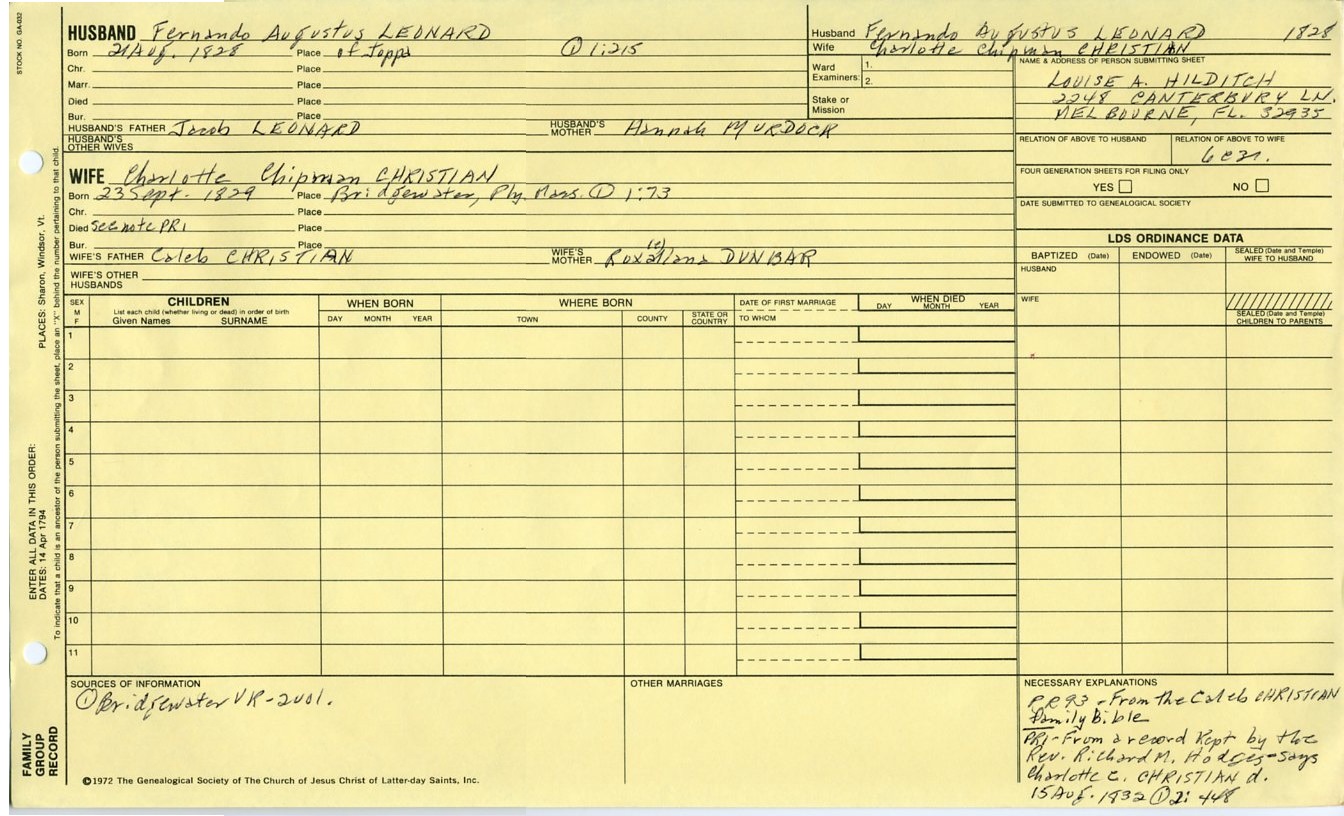 STOCK NO. GA-032
HUSBAND Fernando Augustus LEONARD
Born 21 Aug. 1828 Place of Topps ① 1:215
Chr. Place
Marr. Place
Died Place
Bur. Place
HUSBAND'S FATHER Jacob LEONARD HUSBAND'S MOTHER Hannah MURDOCK
HUSBAND'S OTHER WIVES
WIFE Charlotte Chipman CHRISTIAN
Born 23 Sept. 1829 Place Bridgewater, Ply. Mass. ① 1:73
Chr. Place
Died see note PR1 Place
Bur. Place
WIFE'S FATHER Caleb CHRISTIAN WIFE'S MOTHER Roxallana (e) DUNBAR
WIFE'S OTHER HUSBANDS
Husband Fernando Augustus LEONARD 1828
Wife Charlotte Chipman CHRISTIAN
Ward Examiners: 1.
2.
Stake or Mission
NAME & ADDRESS OF PERSON SUBMITTING SHEET
LOUISE A. HILDITCH
2248 CANTERBURY LN.
MELBOURNE, FL. 32935
RELATION OF ABOVE TO HUSBAND RELATION OF ABOVE TO WIFE
FOUR GENERATION SHEETS FOR FILING ONLY
YES NO
DATE SUBMITTED TO GENEALOGICAL SOCIETY
LDS ORDINANCE DATA
BAPTIZED (Date) ENDOWED (Date) SEALED (Date and Temple) WIFE TO HUSBAND
HUSBAND
WIFE
SEALED (Date and Temple) CHILDREN TO PARENTS
SEX M F
CHILDREN
List each child (whether living or dead) in order of birth
Given Names SURNAME
WHEN BORN
DAY MONTH YEAR
WHERE BORN
TOWN COUNTY STATE OR COUNTRY
DATE OF FIRST MARRIAGE
TO WHOM
WHEN DIED
DAY MONTH YEAR
1
2
3
4
5
6
7
8
9
10
11
SOURCES OF INFORMATION
① Bridgewater VR-2vol.
OTHER MARRIAGES
NECESSARY EXPLANATIONS
PR93 - From the Caleb CHRISTIAN
Family Bible
PR1-From a record kept by the
Rev. Richard M. Hodges-says
Charlotte C. CHRISTIAN d.
15 Aug. 1832 ① 2: 448
©1972 The Genealogical Society of The Church of Jesus Christ of Latter-day Saints, Inc.
FAMILY GROUP RECORD
ENTER ALL DATA IN THIS ORDER:
DATES: 14 Apr 1794
PLACES: Sharon, Windsor, Vt.
To indicate that a child is an ancestor of the person submitting the sheet, place an "X" behind the number pertaining to that child.